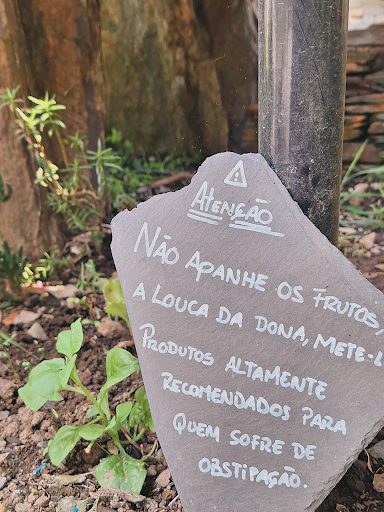 ⚠
Atenção
Não apanhe os frutos,
a louca da dona, mete-l
produtos altamente
recomendados para
quem sofre de
obstipação.